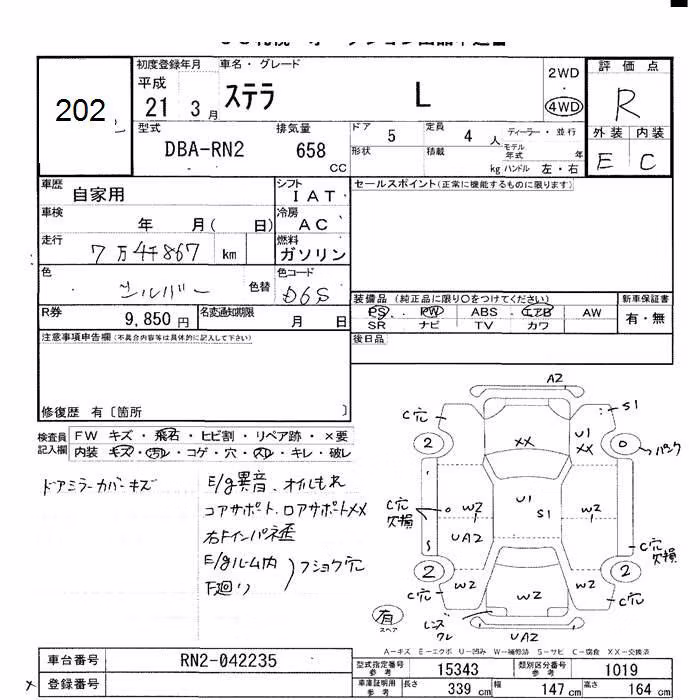 202
初度登録年月 車名・グレード
平成
21 3月 ステラ L 2WD
4WD
評価点
R
外装 内装
E C
型式 排気量 ドア 5 定員 4 人 ディーラー・並行
DBA-RN2 658 CC 形状 積載 kg モデル年式 年
ハンドル 左・右
車歴 自家用 シフト IAT セールスポイント(正常に機能するものに限ります)
車検 年 月( 日) 冷房 AC
走行 7万4千867 km 燃料 ガソリン
色 シルバー 色替 色コード D6S
装備品 (純正品に限り○をつけてください) 新車保証書
PS PW ABS エアB AW 有・無
SR ナビ TV カワ
R券 9,850円 名変通知期限 月 日
後日品
注意事項申告欄(不具合内容等は具体的に記入して下さい)
修復歴 有〔箇所 〕
検査員記入欄 FW キズ・飛石・ヒビ割・リペア跡・×要
内装 キズ・汚レ・コゲ・穴・スレ・キレ・破レ
ドアミラーカバーキズ
E/g異音、オイルもれ
コアサポート、ロアサポートXX
右Fインパネ歪
E/gルーム内
下廻り
フショク穴
A2
C穴 S1
2 XX U1 XX 0 パンク
C穴欠損 W2 U1 S1 W2
UA2
S C穴欠損
2 W2 W2 W2 2
C穴 C穴
有 スペア レンズワレ UA2
A－キズ E－エクボ U－凹み W－補修跡 S－サビ C－腐食 XX－交換済
車台番号 RN2-042235
登録番号
型式指定番号参考 15343 類別区分番号参考 1019
車庫証明用参考 長さ 339 cm 幅 147 cm 高さ 164 cm